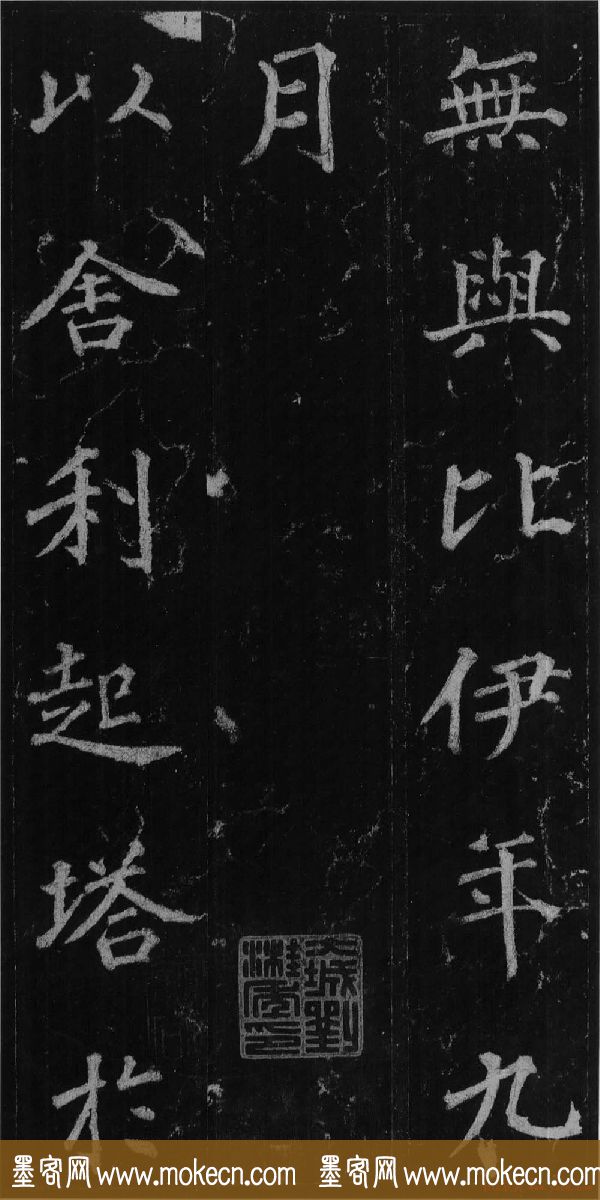 無與比伊年九
月
以舍利起塔於
墨客网 www.mokecn.com 墨客网 www.mokecn.com